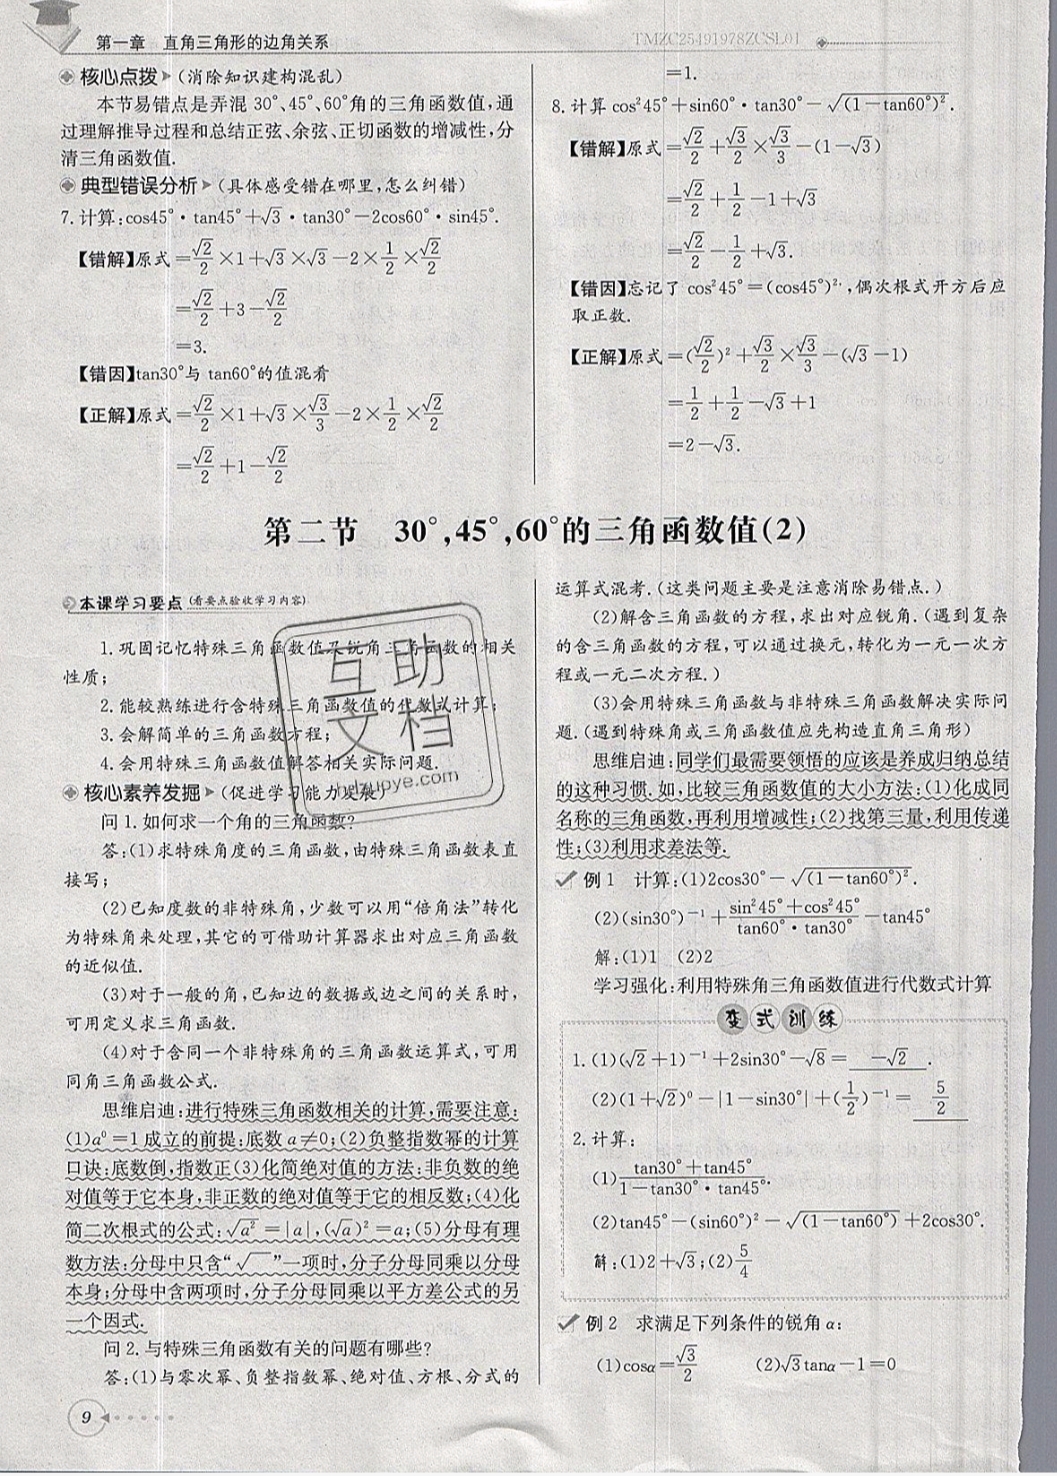 第一章　直角三角形的边角关系
TMZC25491978ZCSL01
核心点拨（消除知识建构混乱）
本节易错点是弄混 30°、45°、60°角的三角函数值,通
过理解推导过程和总结正弦、余弦、正切函数的增减性,分
清三角函数值.
典型错误分析（具体感受错在哪里,怎么纠错）
7. 计算:cos45°·tan45°+√3·tan30°-2cos60°·sin45°.
【错解】原式=√2/2×1+√3×√3-2×1/2×√2/2
=√2/2+3-√2/2
=3.
【错因】tan30°与 tan60°的值混肴
【正解】原式=√2/2×1+√3×√3/3-2×1/2×√2/2
=√2/2+1-√2/2
=1.
8. 计算 cos²45°+sin60°·tan30°-√(1-tan60°)².
【错解】原式=√2/2+√3/2×√3/3-(1-√3)
=√2/2+1/2-1+√3
=√2/2-1/2+√3.
【错因】忘记了 cos²45°=(cos45°)²·,偶次根式开方后应
取正数.
【正解】原式=(√2/2)²+√3/2×√3/3-(√3-1)
=1/2+1/2-√3+1
=2-√3.
第二节　30°,45°,60°的三角函数值(2)
本课学习要点（看要点验收学习内容）
1. 巩固记忆特殊三角函数值及锐角三角函数的相关
性质;
2. 能较熟练进行含特殊三角函数值的代数式计算;
3. 会解简单的三角函数方程;
4. 会用特殊三角函数值解答相关实际问题.
核心素养发掘（促进学习能力发展）
问 1. 如何求一个角的三角函数?
答:(1)求特殊角度的三角函数,由特殊三角函数表直
接写;
(2)已知度数的非特殊角,少数可以用“倍角法”转化
为特殊角来处理,其它的可借助计算器求出对应三角函数
的近似值.
(3)对于一般的角,已知边的数据或边之间的关系时,
可用定义求三角函数.
(4)对于含同一个非特殊角的三角函数运算式,可用
同角三角函数公式.
思维启迪:进行特殊三角函数相关的计算,需要注意:
(1)a⁰=1成立的前提:底数 a≠0;(2)负整指数幂的计算
口诀:底数倒,指数正(3)化简绝对值的方法:非负数的绝
对值等于它本身,非正数的绝对值等于它的相反数;(4)化
简二次根式的公式:√a²=|a|,(√a)²=a;(5)分母有理
数方法:分母中只含“√　”一项时,分子分母同乘以分母
本身;分母中含两项时,分子分母同乘以平方差公式的另
一个因式.
问 2. 与特殊三角函数有关的问题有哪些?
答:(1)与零次幂、负整指数幂、绝对值、方根、分式的
运算式混考.(这类问题主要是注意消除易错点.)
(2)解含三角函数的方程,求出对应锐角.(遇到复杂
的含三角函数的方程,可以通过换元,转化为一元一次方
程或一元二次方程.)
(3)会用特殊三角函数与非特殊三角函数解决实际问
题.(遇到特殊角或三角函数值应先构造直角三角形)
思维启迪:同学们最需要领悟的应该是养成归纳总结
的这种习惯.如,比较三角函数值的大小方法:(1)化成同
名称的三角函数,再利用增减性;(2)找第三量,利用传递
性;(3)利用求差法等.
例 1　计算:(1)2cos30°-√(1-tan60°)².
(2)(sin30°)⁻¹+(sin²45°+cos²45°)/(tan60°·tan30°)-tan45°
解:(1)1　(2)2
学习强化:利用特殊角三角函数值进行代数式计算
变式训练
1. (1)(√2+1)⁻¹+2sin30°-√8= -√2 .
(2)(1+√2)⁰-|1-sin30°|+(1/2)⁻¹= 5/2
2. 计算:
(1)(tan30°+tan45°)/(1-tan30°·tan45°).
(2)tan45°-(sin60°)²-√(1-tan60°)+2cos30°.
解:(1)2+√3;(2)5/4
例 2　求满足下列条件的锐角 α:
(1)cosα=√3/2　　(2)√3tanα-1=0
9
互助
文档